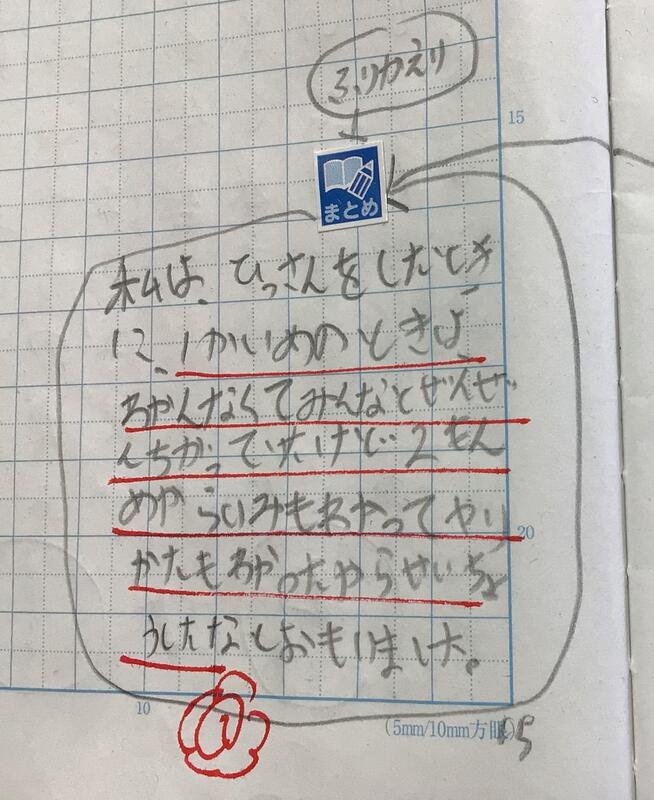 ふりかえり
15
まとめ
私は、ひっさんをしたとき
に、1かいめのときは、
わかんなくてみんなとぜんぜ
んちがっていたけど2もん
めからいみもわかってやり
20
かたもわかったからせいちょ
うしたなとおもいました。
10
(5mm/10mm方眼)
15